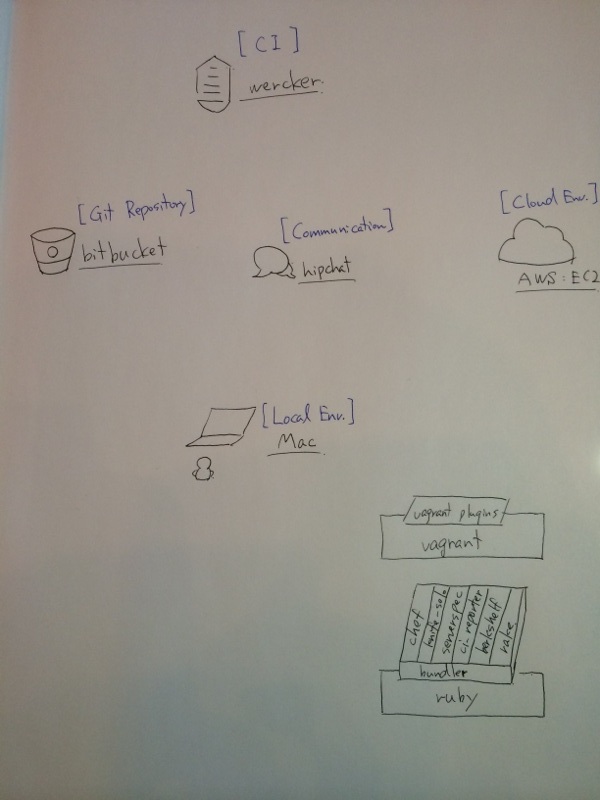 [CI]
wercker
[Git Repository]
bitbucket
[Communication]
hipchat
[Cloud Env.]
AWS:EC2
[Local Env.]
Mac
vagrant plugins
vagrant
chef
knife-solo
serverspec
ci-reporter
berkshelf
rake
bundler
ruby